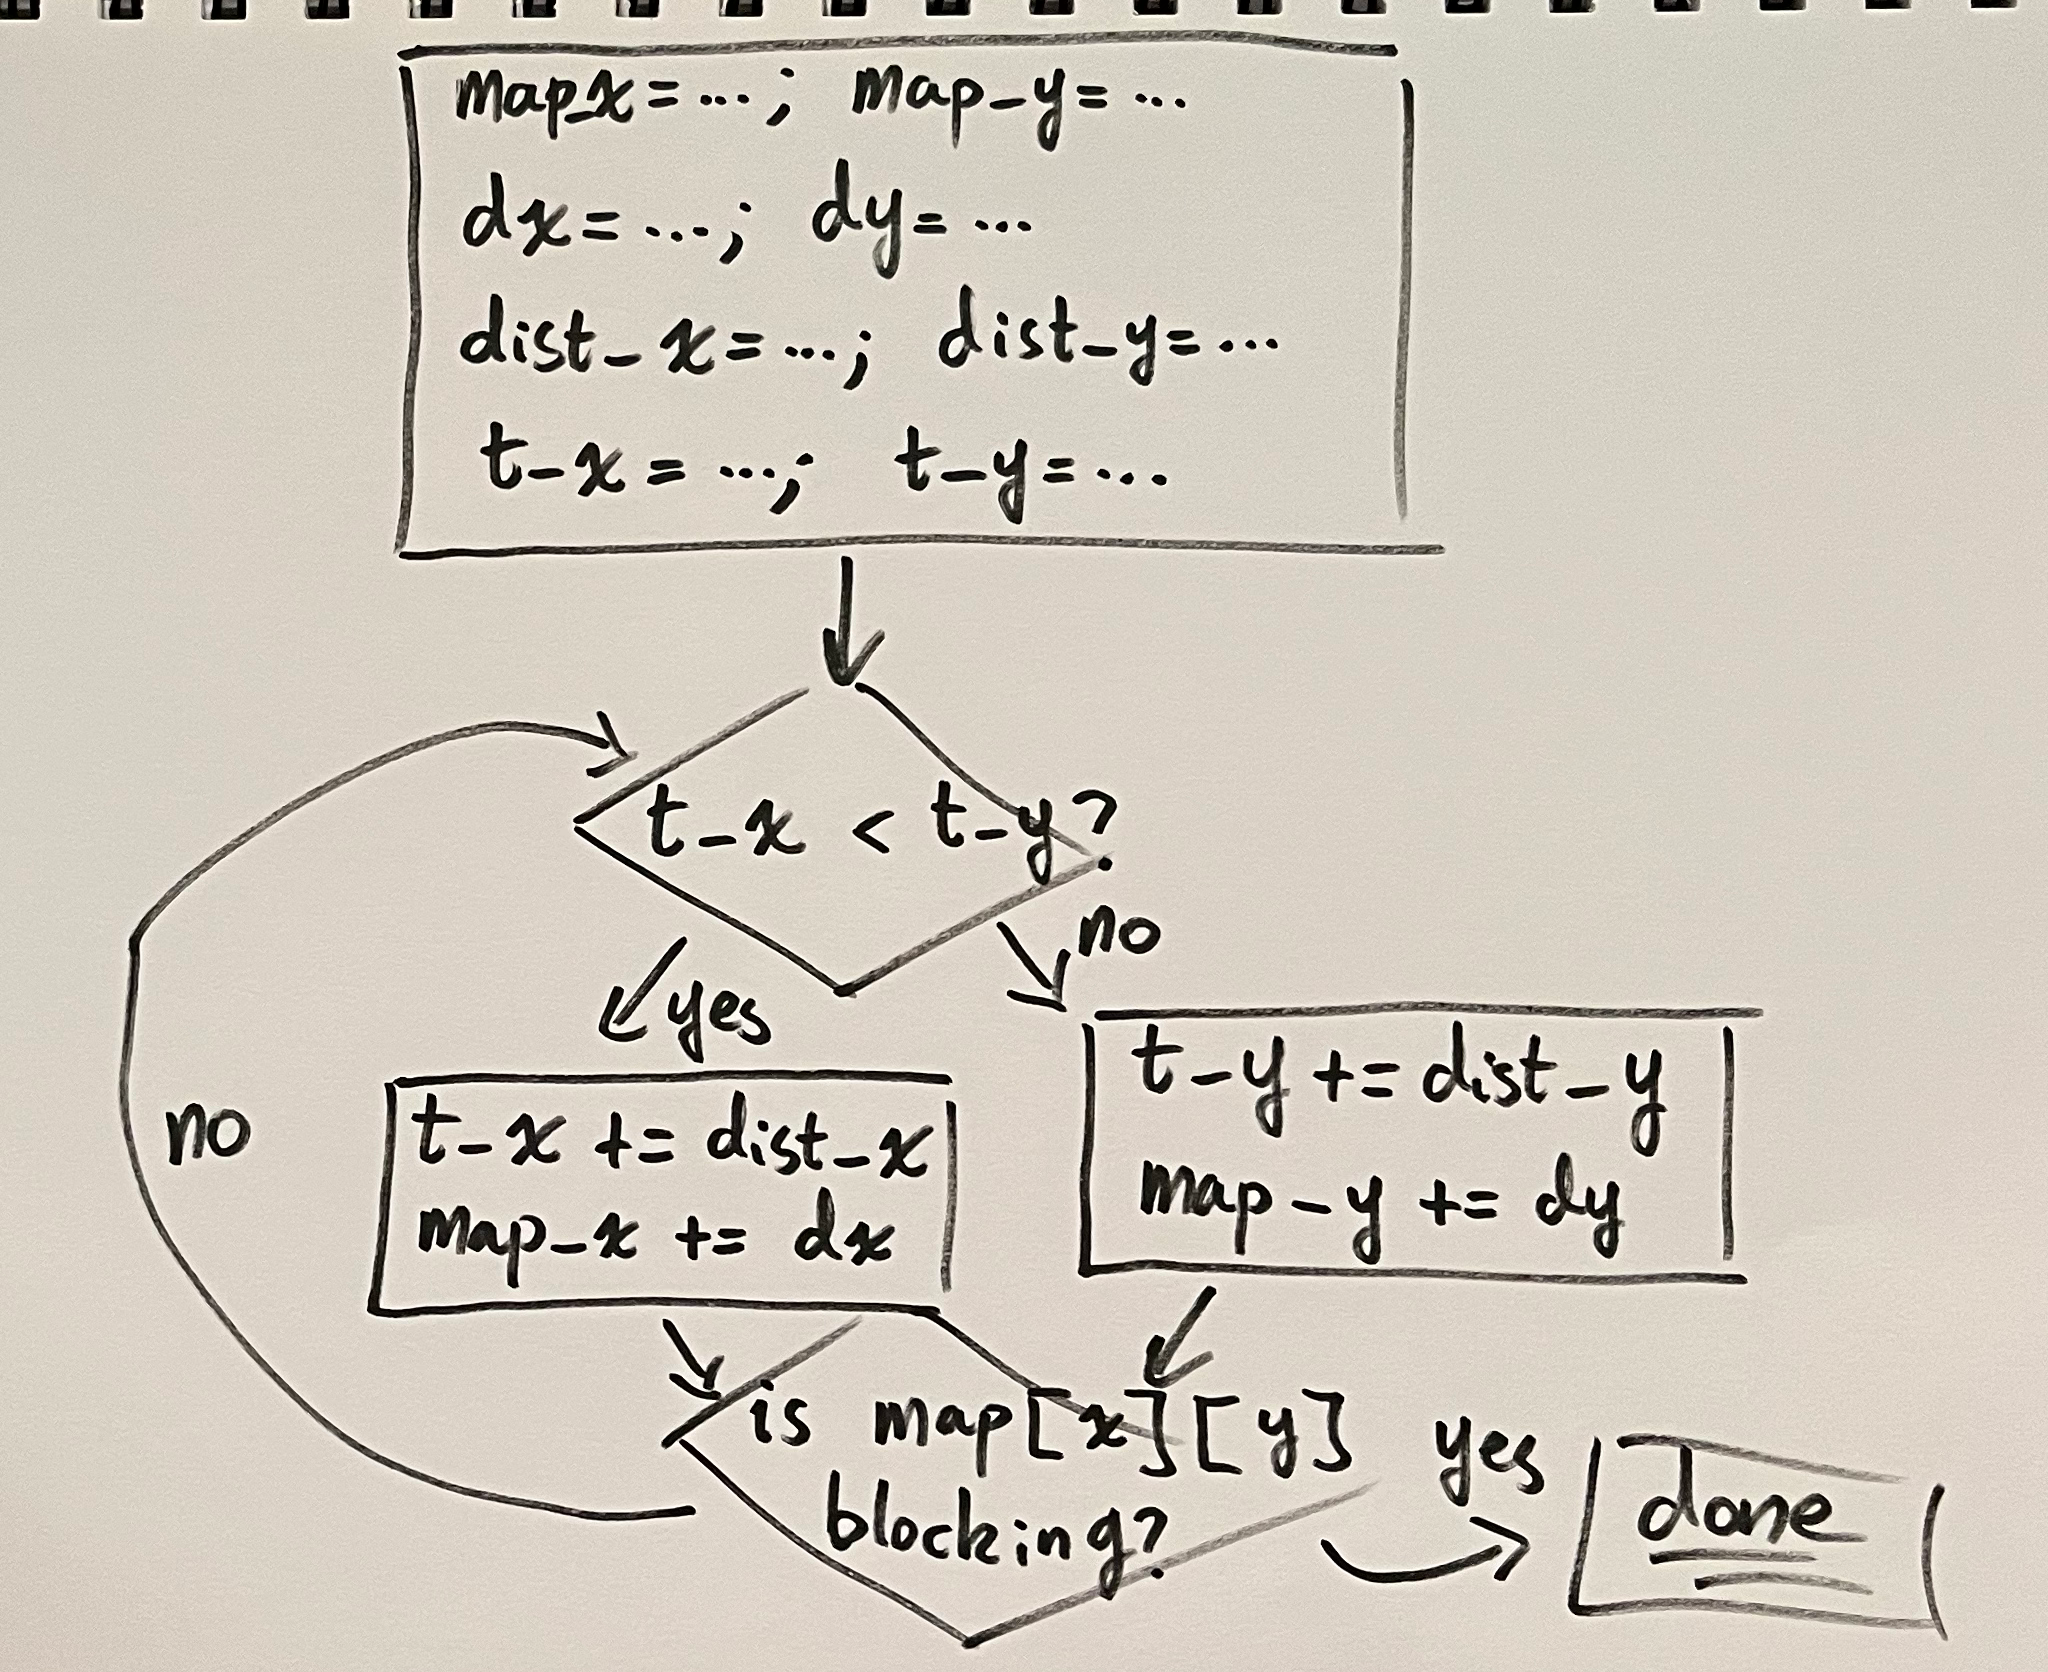 map_x=...; map_y=...
dx=...; dy=...
dist_x=...; dist_y=...
t_x=...; t_y=...
t_x < t_y?
no
yes
t_y += dist_y
map_y += dy
no
t_x += dist_x
map_x += dx
is map[x][y]
blocking?
yes
done